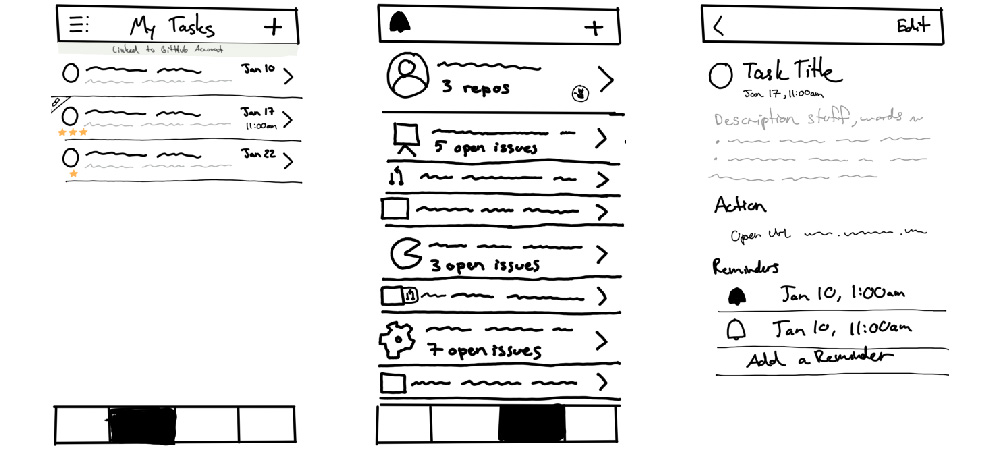 My Tasks
Linked to GitHub Account
Jan 10
Jan 17
11:00am
Jan 22
3 repos
5 open issues
3 open issues
7 open issues
Edit
Task Title
Jan 17, 11:00am
Description stuff, words
Action
Open Url
Reminders
Jan 10, 1:00am
Jan 10, 11:00am
Add a Reminder